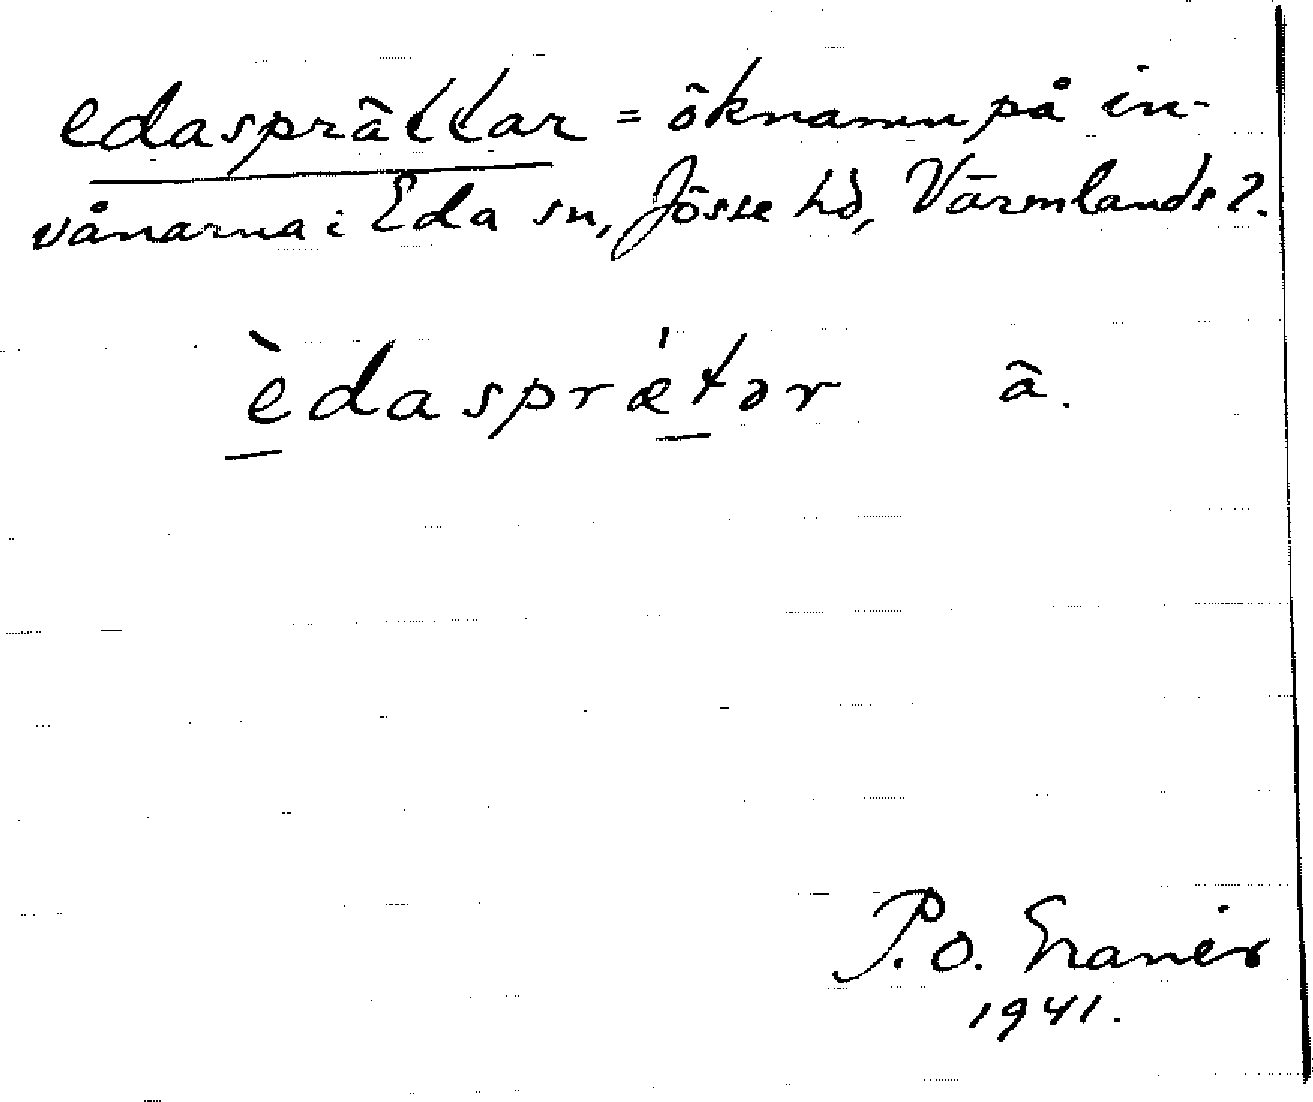 edasprättar = öknamn på in-
vånarna i Eda sn, Jösse hd, Värmlands l.
èdasprǽtər ä.
P. O.
1941.